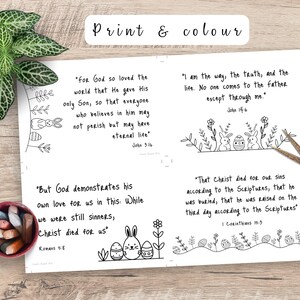 Print & colour
"For God so loved
the world
that He gave His
only Son, so that everyone
who believes in him may
not perish but may have
eternal life"
John 3:16
"I am the way, the truth, and the
life. No one comes to the father
except through me."
John 14:6
"But God demonstrates his
own love for us in this: While
we were still sinners,
Christ died for us"
Romans 5:8
"That Christ died for our sins
according to the Scriptures, that he
was buried, that he was raised on the
third day according to the Scriptures"
1 Corinthians 15:3